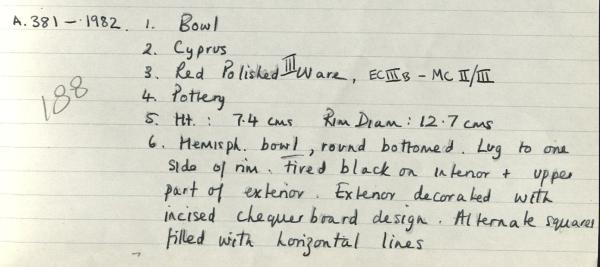 A.381-1982. 1. Bowl
2. Cyprus
3. Red Polished III Ware, EC III B - MC II/III
188
4. Pottery
5. Ht.: 7.4 cms Rim Diam: 12.7 cms
6. Hemisph. bowl, round bottomed. Lug to one
side of rim. Fired black on interior + upper
part of exterior. Exterior decorated with
incised chequer board design. Alternate squares
filled with horizontal lines